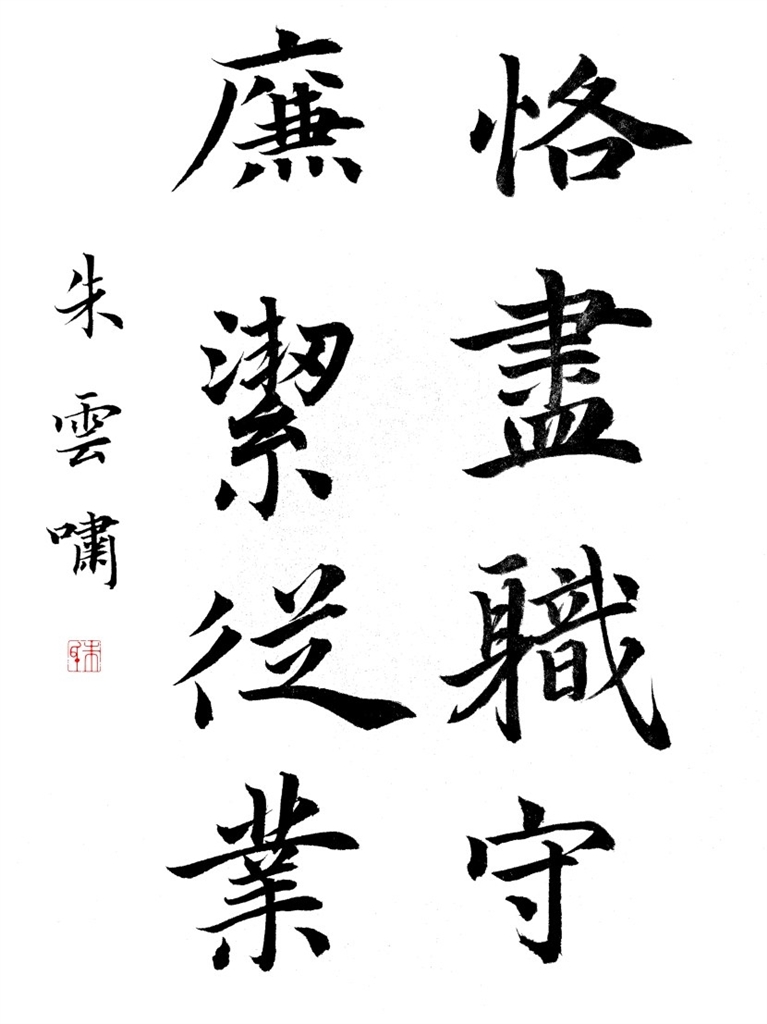 恪盡職守
廉潔從業
朱雲嘯